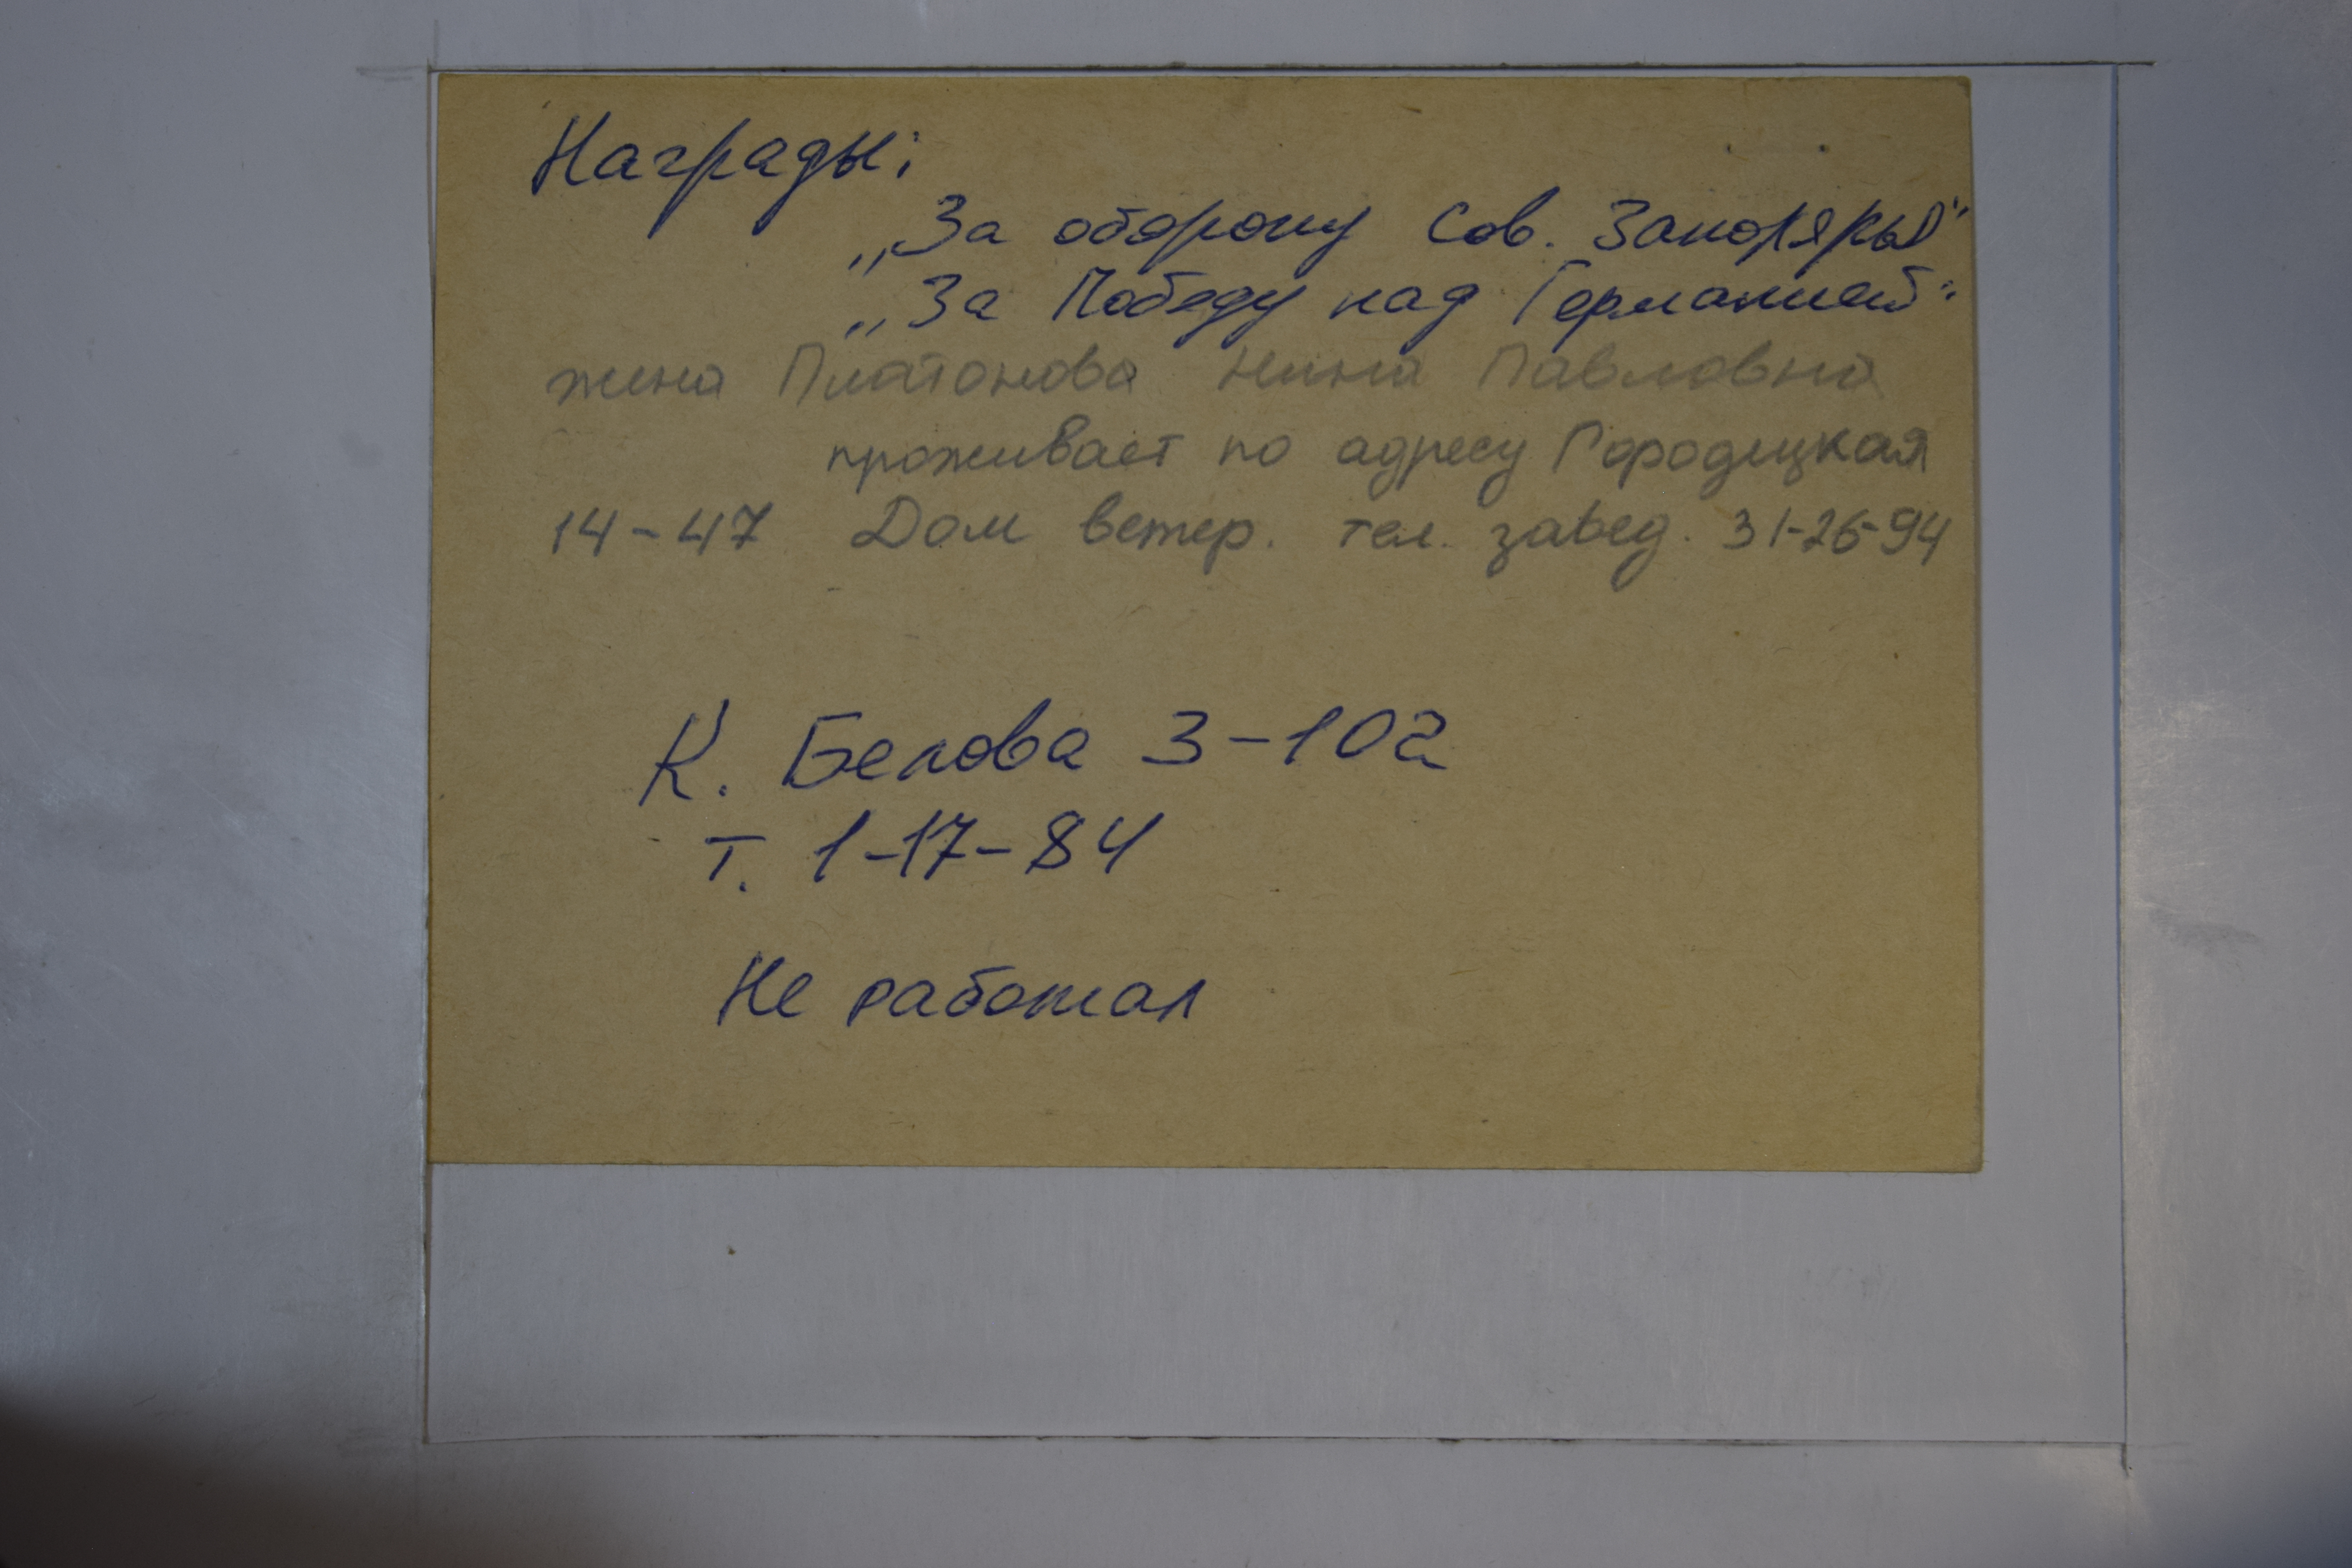 Награды:
„За оборону Сов. Заполярья"
„За Победу над Германией"
жена Платонова Нина Павловна
проживает по адресу Городецкая
14-47 Дом ветер. тел. завед. 31-26-94
К. Белова 3-102
т. 1-17-84
Не работал